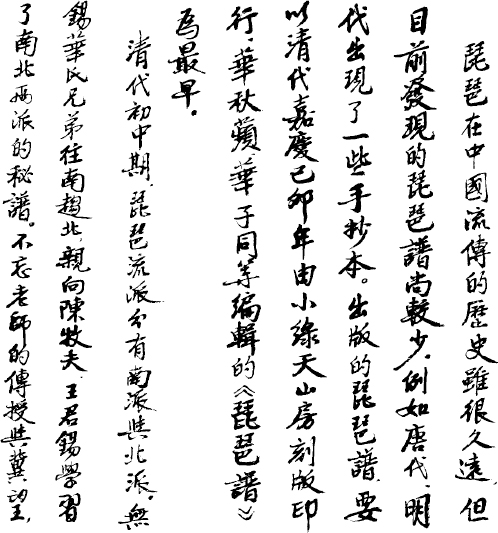 琵琶在中國流傳的歷史雖很久遠，但
目前發現的琵琶譜尚較少，例如唐代、明
代出現了一些手抄本。出版的琵琶譜，要
以清代嘉慶己卯年由小綠天山房刻版印
行，華秋蘋、華子同等編輯的《琵琶譜》
為最早。
清代初中期，琵琶流派分有南派與北派。無
錫華氏兄弟往南趨北，親向陳牧夫、王君錫學習
了南北兩派的秘譜。不忘老師的傳授與冀望，